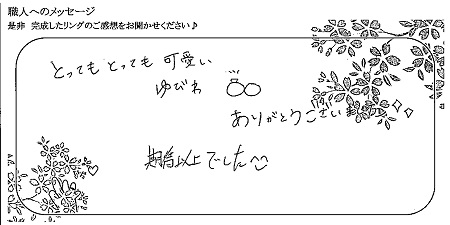 職人へのメッセージ
是非 完成したリングのご感想をお聞かせください♪
とってもとっても可愛い
ゆびわ
ありがとうござい
期待以上でした